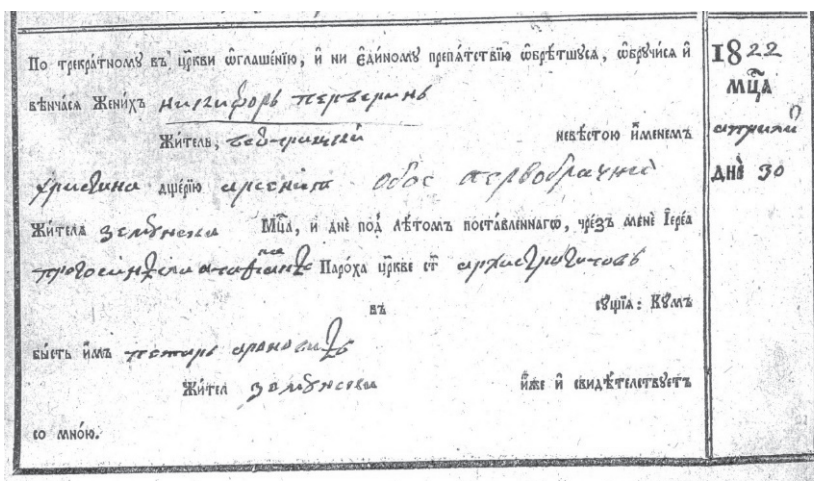 По трекра́тномꙋ въ цр҃кви ѡ҆глаше́нїю, и҆ ни є҆ди́номꙋ препѧ́тствїю ѡ҆брѣ́тшꙋсѧ, ѡ҆брꙋчи́сѧ и҆
вѣнча́сѧ Жени́хъ нигифоръ перверинъ
Жи́тель, невѣ́стою и҆́менемъ
христина дще́рїю арсенија обое первобрачнїи
Жи́телѧ земꙋнска Мц҃а, и днѐ под̾ лѣ́томъ поста́вленнагѡ, чре́зъ менѐ І҆ере́а
Паро́ха цр҃кве ст҃
въ сꙋ́щїѧ: Кꙋ́мъ
бы́сть и҆̀мъ петаръ
Жи́тел земꙋнски и҆́же и҆ свидѣ́телствꙋетъ
со мно́ю.
1822
мц҃а
априлі
днѐ 30